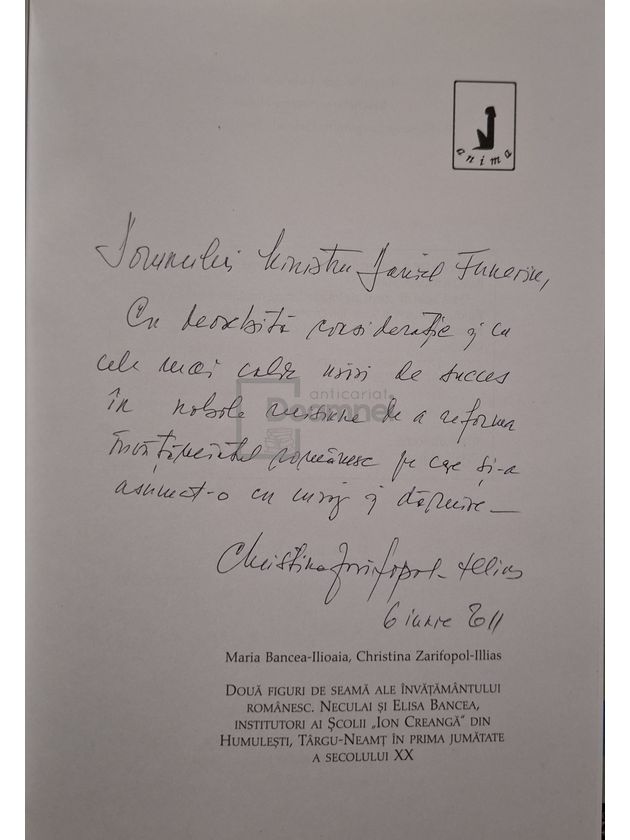 anima
Domnului Ministru Daniel Funeriu,
Cu deosebită considerație și cu
cele mai calde urări de succes
în nobila misiune de a reforma
învățământul românesc pe care și-a
asumat-o cu curaj și dăruire_
anticariat
Doamnei
Christina Zarifopol-Illias
6 iunie 2011
Maria Bancea-Ilioaia, Christina Zarifopol-Illias
DOUĂ FIGURI DE SEAMĂ ALE ÎNVĂȚĂMÂNTULUI
ROMÂNESC. NECULAI ȘI ELISA BANCEA,
INSTITUTORI AI ȘCOLII „ION CREANGĂ” DIN
HUMULEȘTI, TÂRGU-NEAMȚ ÎN PRIMA JUMĂTATE
A SECOLULUI XX